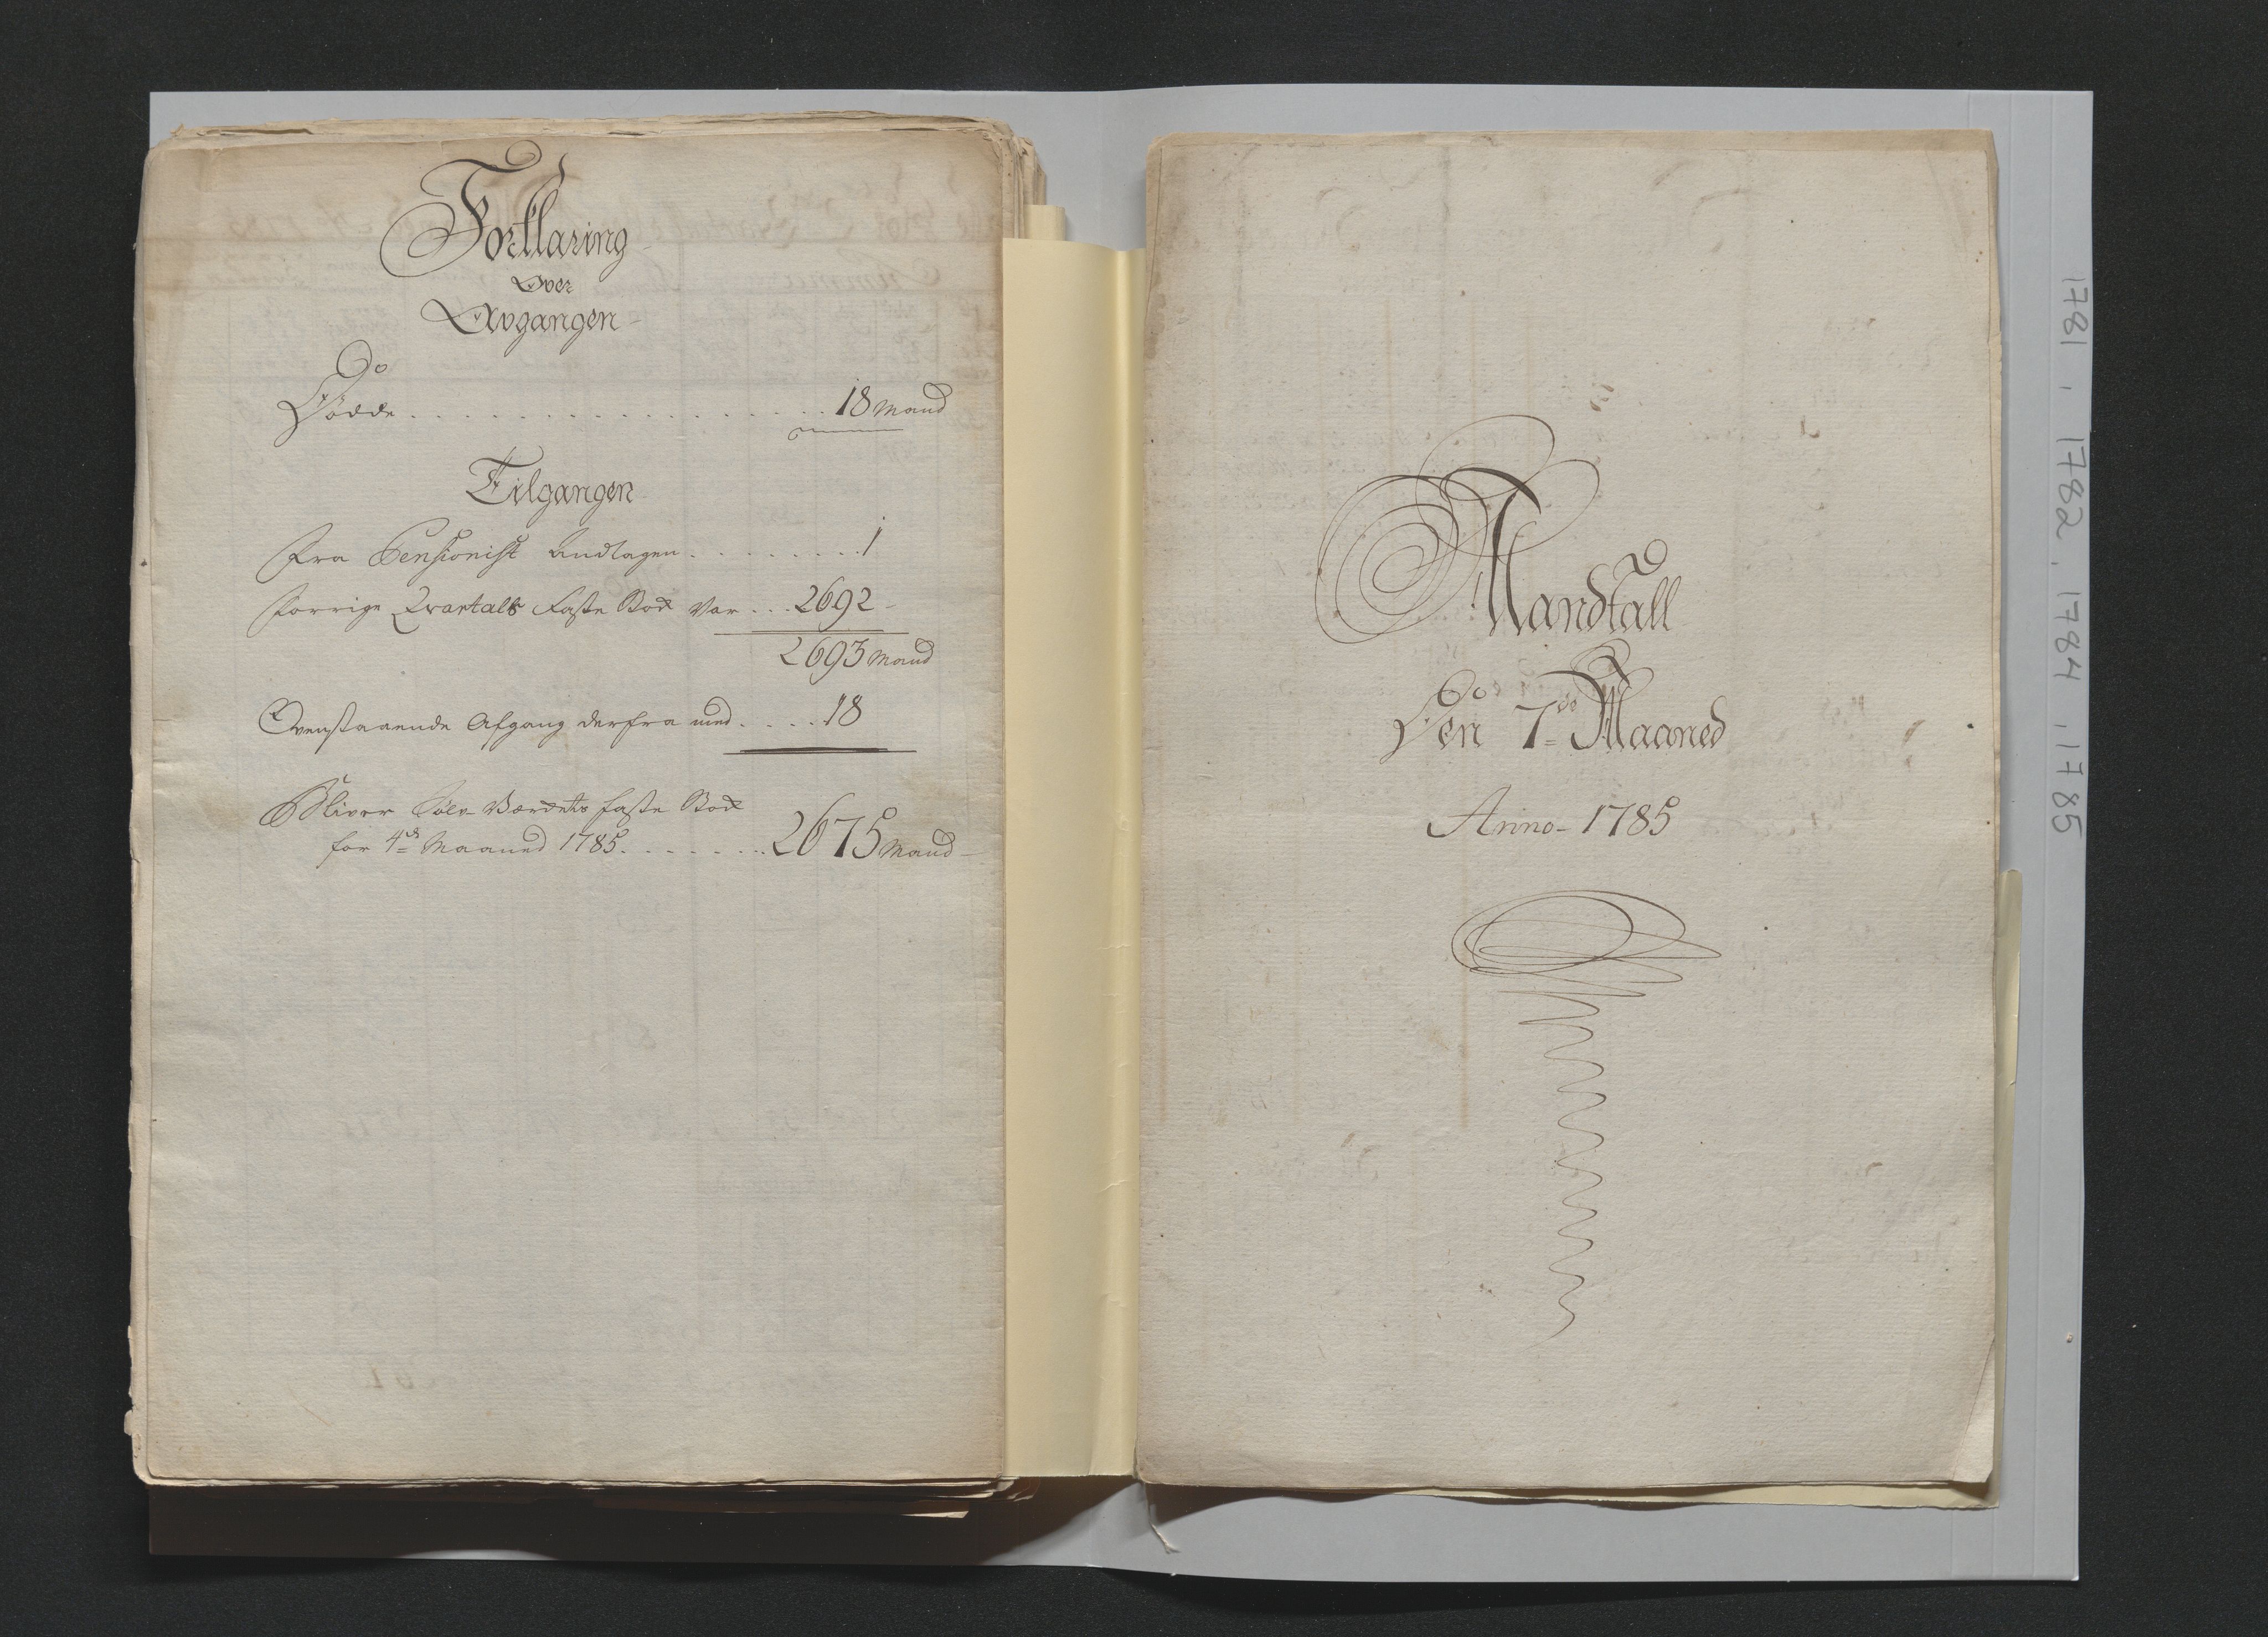 Forklaring
Over
Avgangen
Døde . . . . . . . . . . . . . . . . 18 Mand
Tilgangen
Fra Pensionist Andtagen . . . . . . . . . 1
Forrige Qvartals Faste Stok Var . . . 2692
2693 Mand
Ovenstaaende Afgang derfra med . . . . 18
Bliver Sølv-Værdets faste Stok
for 4de Maaned 1785 . . . . . . . 2675 Mand
Mandtall
Den 7de Maaned
Anno 1785
1781, 1782, 1784, 1785